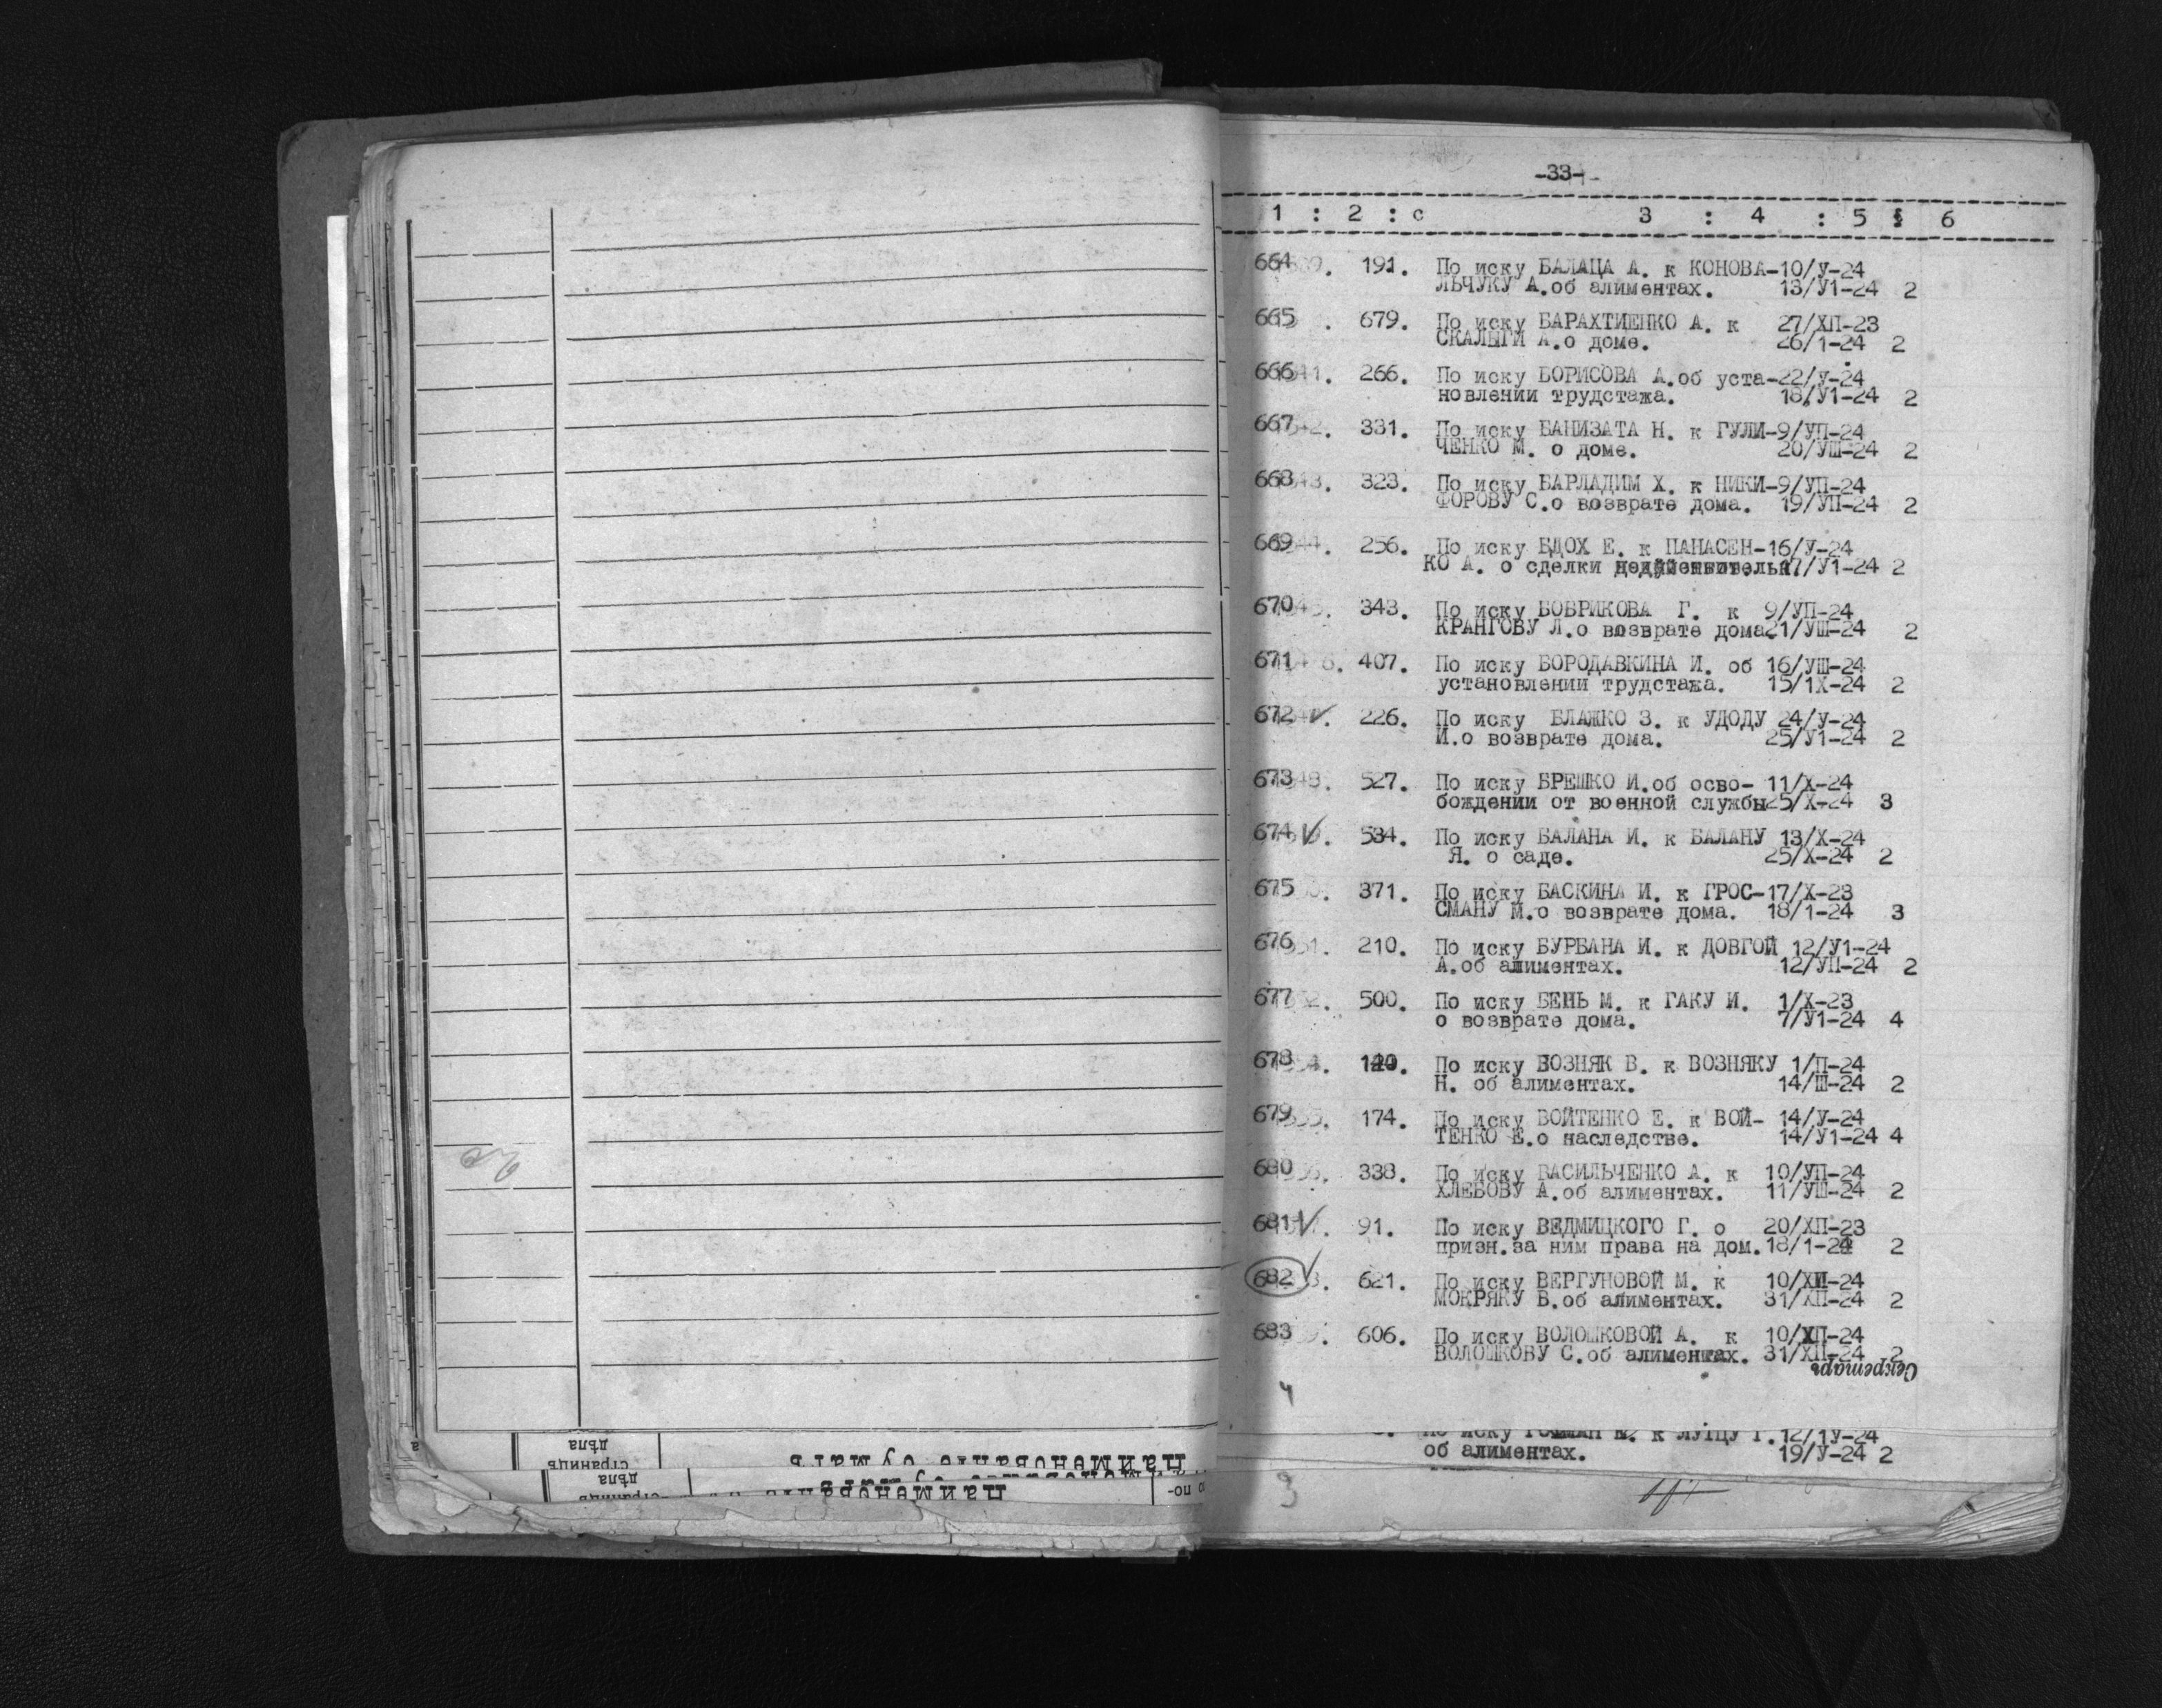 -33-
1 : 2 : с 3 : 4 : 5 : 6
664 191. По иску БАЛАЦА А. к КОНОВА-10/У-24
ЛЬЧУКУ А.об алиментах. 13/У1-24 2
665 . 679. По иску БАРАХТИЕНКО А. к 27/ХП-23
СКАЛЫГИ А.о доме. 26/1-24 2
666 266. По иску БОРИСОВА А.об уста-22/У-24
новлении трудстажа. 18/У1-24 2
667 331. По иску БАНИЗАТА Н. к ГУЛИ-9/УП-24
ЧЕНКО М. о доме. 20/УШ-24 2
668 323. По иску БАРЛАДИМ Х. к НИКИ-9/УП-24
ФОРОВУ С.о возврате дома. 19/УП-24 2
669 256. По иску БДОХ Е. к ПАНАСЕН-16/У-24
КО А. о сделки 17/У1-24 2
670 343. По иску БОБРИКОВА Г. к 9/УП-24
КРАНГОВУ Л.о возврате дома21/УШ-24 2
671 407. По иску БОРОДАВКИНА И. об 16/УШ-24
установлении трудстажа. 15/1Х-24 2
672 226. По иску БЛАЖКО З. к УДОДУ 24/У-24
И.о возврате дома. 25/У1-24 2
673 527. По иску БРЕШКО И.об осво- 11/Х-24
бождении от военной службы25/Х-24 3
674 534. По иску БАЛАНА И. к БАЛАНУ 13/Х-24
Я. о саде. 25/Х-24 2
675 371. По иску БАСКИНА И. к ГРОС-17/Х-23
СМАНУ М.о возврате дома. 18/1-24 3
676 210. По иску БУРБАНА И. к ДОВГОЙ 12/У1-24
А.об алиментах. 12/УП-24 2
677 500. По иску БЕНЬ М. к ГАКУ И. 1/Х-23
о возврате дома. 7/У1-24 4
678 По иску ВОЗНЯК В. к ВОЗНЯКУ 1/П-24
Н. об алиментах. 14/Ш-24 2
679 174. По иску ВОЙТЕНКО Е. к ВОЙ- 14/У-24
ТЕНКО Е.о наследстве. 14/У1-24 4
680 338. По иску ВАСИЛЬЧЕНКО А. к 10/УП-24
ХЛЕБОВУ А.об алиментах. 11/УШ-24 2
681 91. По иску ВЕДМИЦКОГО Г. о 20/ХП-23
призн.за ним права на дом.18/1-24 2
682 621. По иску ВЕРГУНОВОЙ М. к 10/ХП-24
МОКРЯКУ В.об алиментах. 31/ХП-24 2
683 606. По иску ВОЛОШКОВОЙ А. к 10/ХП-24
ВОЛОШКОВУ С.об алиментах. 31/ХП-24 2
Секретарь
По иску к ЛУПЦУ Г.12/1У-24
об алиментах. 19/У-24 2
страницъ
дѣла
наименованіе бумагъ
страницъ
дѣла
наименованіе
по-